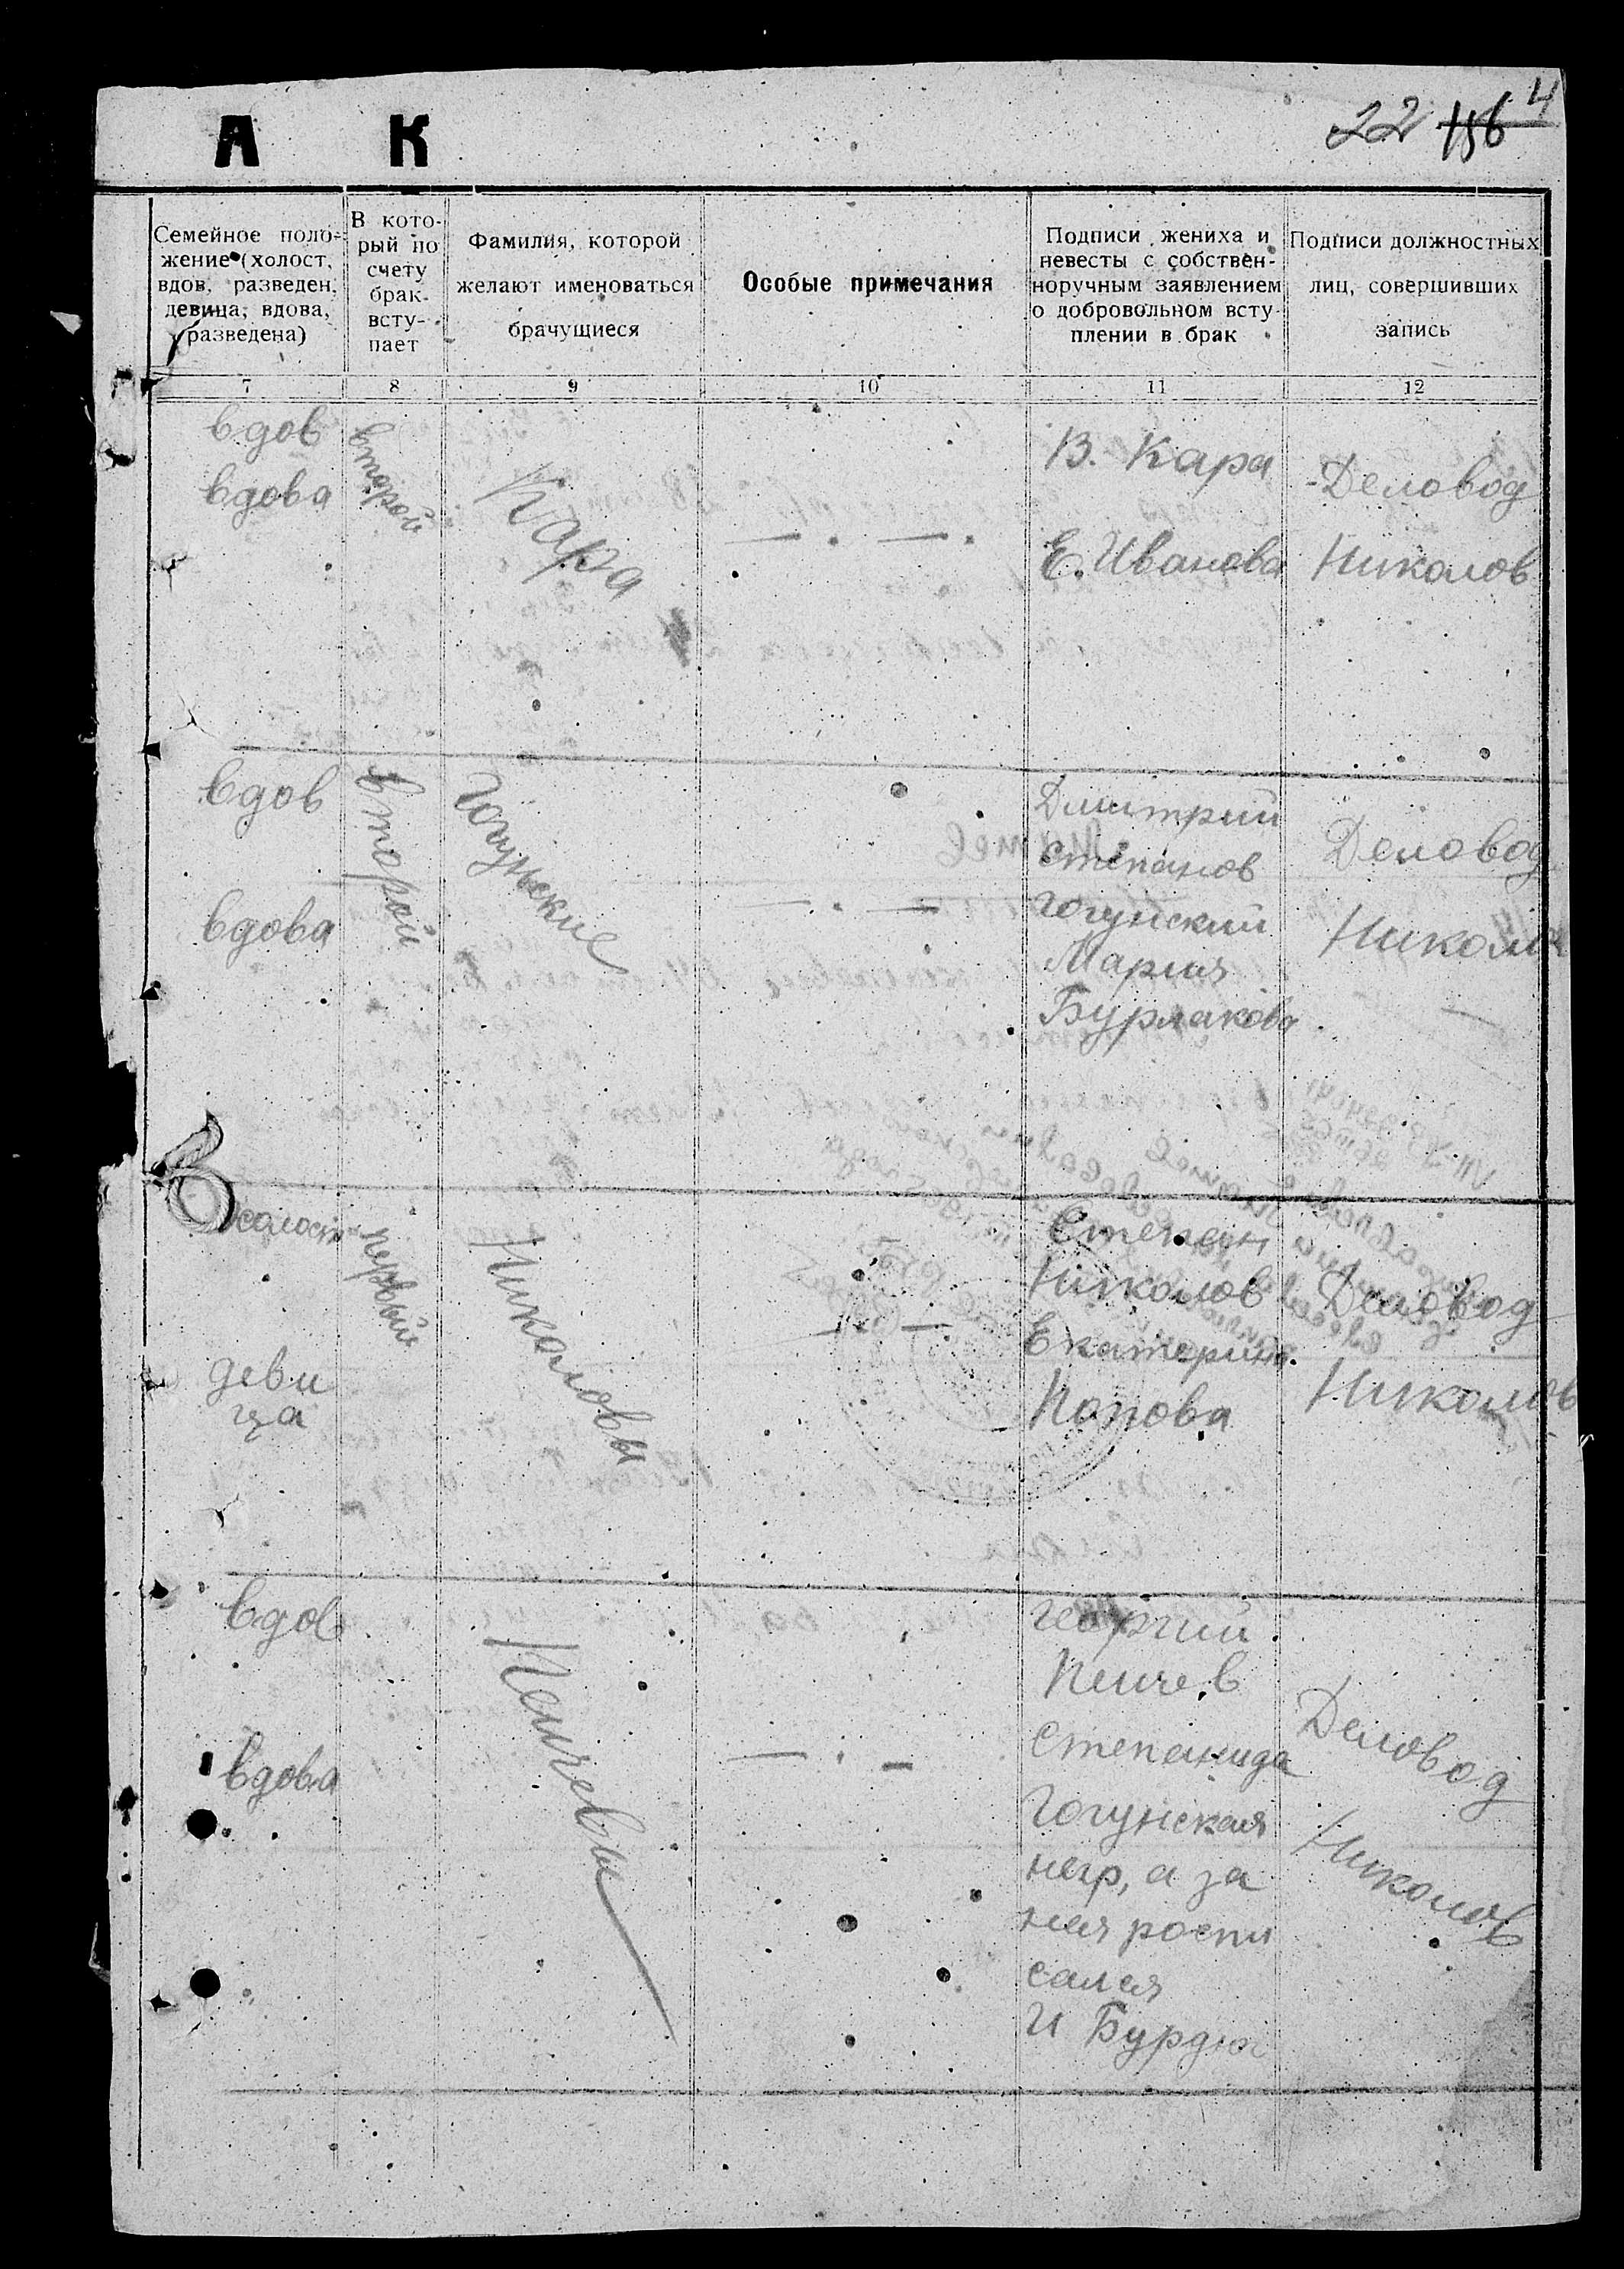 А К
22 4
Семейное поло-
жение (холост,
вдов, разведен,
девица, вдова,
разведена)
В кото-
рый по
счету
брак
всту-
пает
Фамилия, которой
желают именоваться
брачущиеся
Особые примечания
Подписи жениха и
невесты с собствен-
норучным заявлением
о добровольном всту-
плении в брак
Подписи должностных
лиц, совершивших
запись
7 8 9 10 11 12
вдов
вдова
второй
Кара
— . — .
В. Кара
Е. Иванова
Деловод
Николов
вдов
вдова
второй
Гогунские
— . —
Дмитрий
Степанов
Гогунский
Мария
Бурлакова
Деловод
Николов
холост
деви
ца
первый
Николовы
Степан
Николов
Екатерина
Попова
Деловод
Николов
вдов
вдова
Пейчевы
— . —
Георгий
Пейчев
Степанида
Гогунская
негр, а за
нея роспи
сался
И Бурдюг
Деловод
Николов